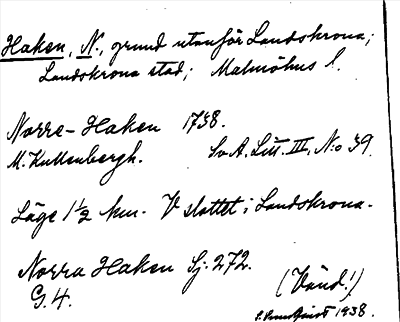 Haken, N., grund utanför Landskrona;
Landskrona stad; Malmöhus l.
Norre-Haken 1738.
M. Kullenbergh. Sv.A. Litt. III, N:o 39.
Läge 1½ km. V slottet i Landskrona.
Norra Haken Sj. 272.
G. 4. (Vänd!)
1938.